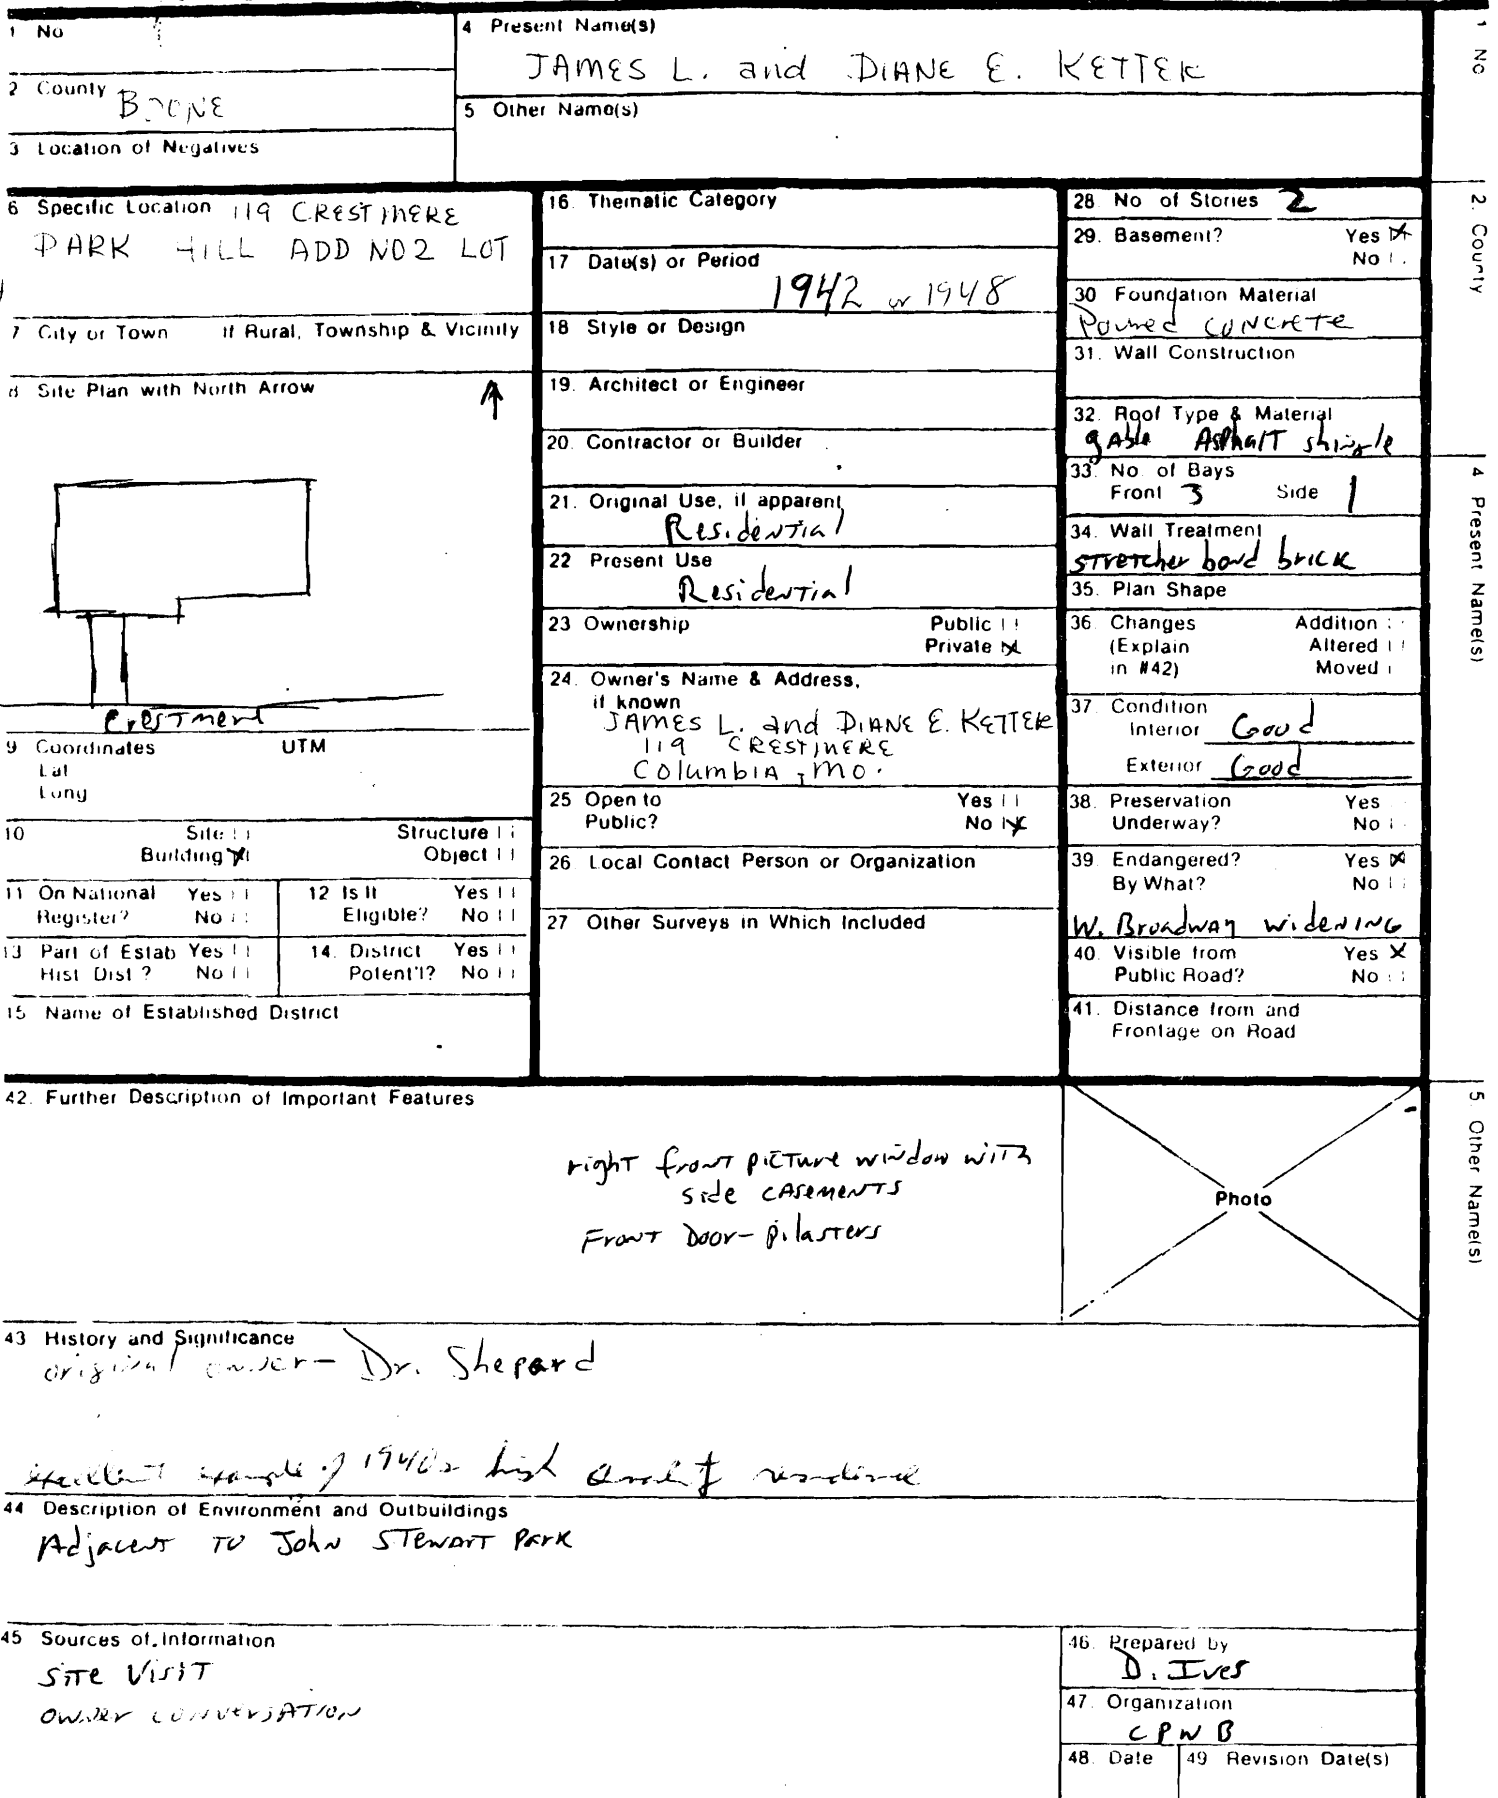 1 No
4 Present Name(s)
JAMES L. and DIANE E. KETTER
2 County BOONE
5 Other Name(s)
3 Location of Negatives
6 Specific Location 119 CRESTMERE
PARK HILL ADD NO2 LOT
7 City or Town If Rural, Township & Vicinity
8 Site Plan with North Arrow
Crestmere
9 Coordinates UTM
Lat
Long
10 Site Structure
Building X Object
11 On National Register? Yes No
12 Is It Eligible? Yes No
13 Part of Estab Hist Dist? Yes No
14. District Potent'l? Yes No
15 Name of Established District
16. Thematic Category
17 Date(s) or Period
1942 or 1948
18 Style or Design
19. Architect or Engineer
20. Contractor or Builder
21. Original Use, if apparent
Residential
22 Present Use
Residential
23 Ownership Public
Private X
24. Owner's Name & Address,
if known
JAMES L. and DIANE E. KETTER
119 CRESTMERE
Columbia, MO.
25 Open to Yes
Public? No X
26. Local Contact Person or Organization
27 Other Surveys in Which Included
28. No of Stories 2
29. Basement? Yes X
No
30 Foundation Material
Poured CONCRETE
31. Wall Construction
32. Roof Type & Material
gable Asphalt shingle
33. No. of Bays
Front 3 Side 1
34. Wall Treatment
stretcher bond brick
35. Plan Shape
36. Changes Addition
(Explain Altered
in #42) Moved
37. Condition
Interior Good
Exterior Good
38. Preservation Yes
Underway? No
39. Endangered? Yes X
By What? No
W. Broadway widening
40. Visible from Yes X
Public Road? No
41. Distance from and
Frontage on Road
42. Further Description of Important Features
right front picture window with
side casements
Front Door - pilasters
Photo
43 History and Significance
original owner - Dr. Shepard
excellent example of 1940s high quality residence
44 Description of Environment and Outbuildings
Adjacent to John Stewart Park
45 Sources of Information
Site Visit
owner conversation
46. Prepared by
D. Ives
47. Organization
CPWB
48. Date 49 Revision Date(s)
1 No
2. County
4 Present Name(s)
5 Other Name(s)